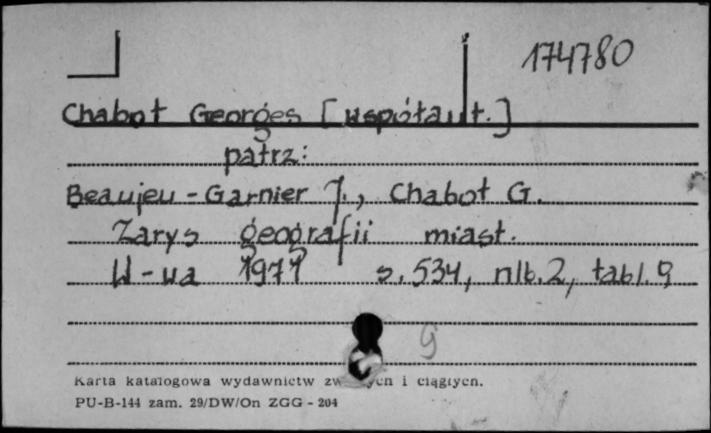 174780
Chabot Georges [współaut.]
patrz:
Beaujeu-Garnier J., Chabot G.
Zarys geografii miast.
W-wa 1971 s. 534, nlb. 2, tabl. 9
9
Karta katalogowa wydawnictw i ciągłych.
PU-B-144 zam. 29/DW/On ZGG - 204